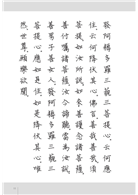 發阿耨多羅三藐三菩提心云何應
住云何降伏其心佛言善哉善哉須
菩提如汝所說如來善護念諸菩薩
善付囑諸菩薩汝今諦聽當為汝說
善男子善女人發阿耨多羅三藐三
菩提心應如是住如是降伏其心唯
然世尊願樂欲聞